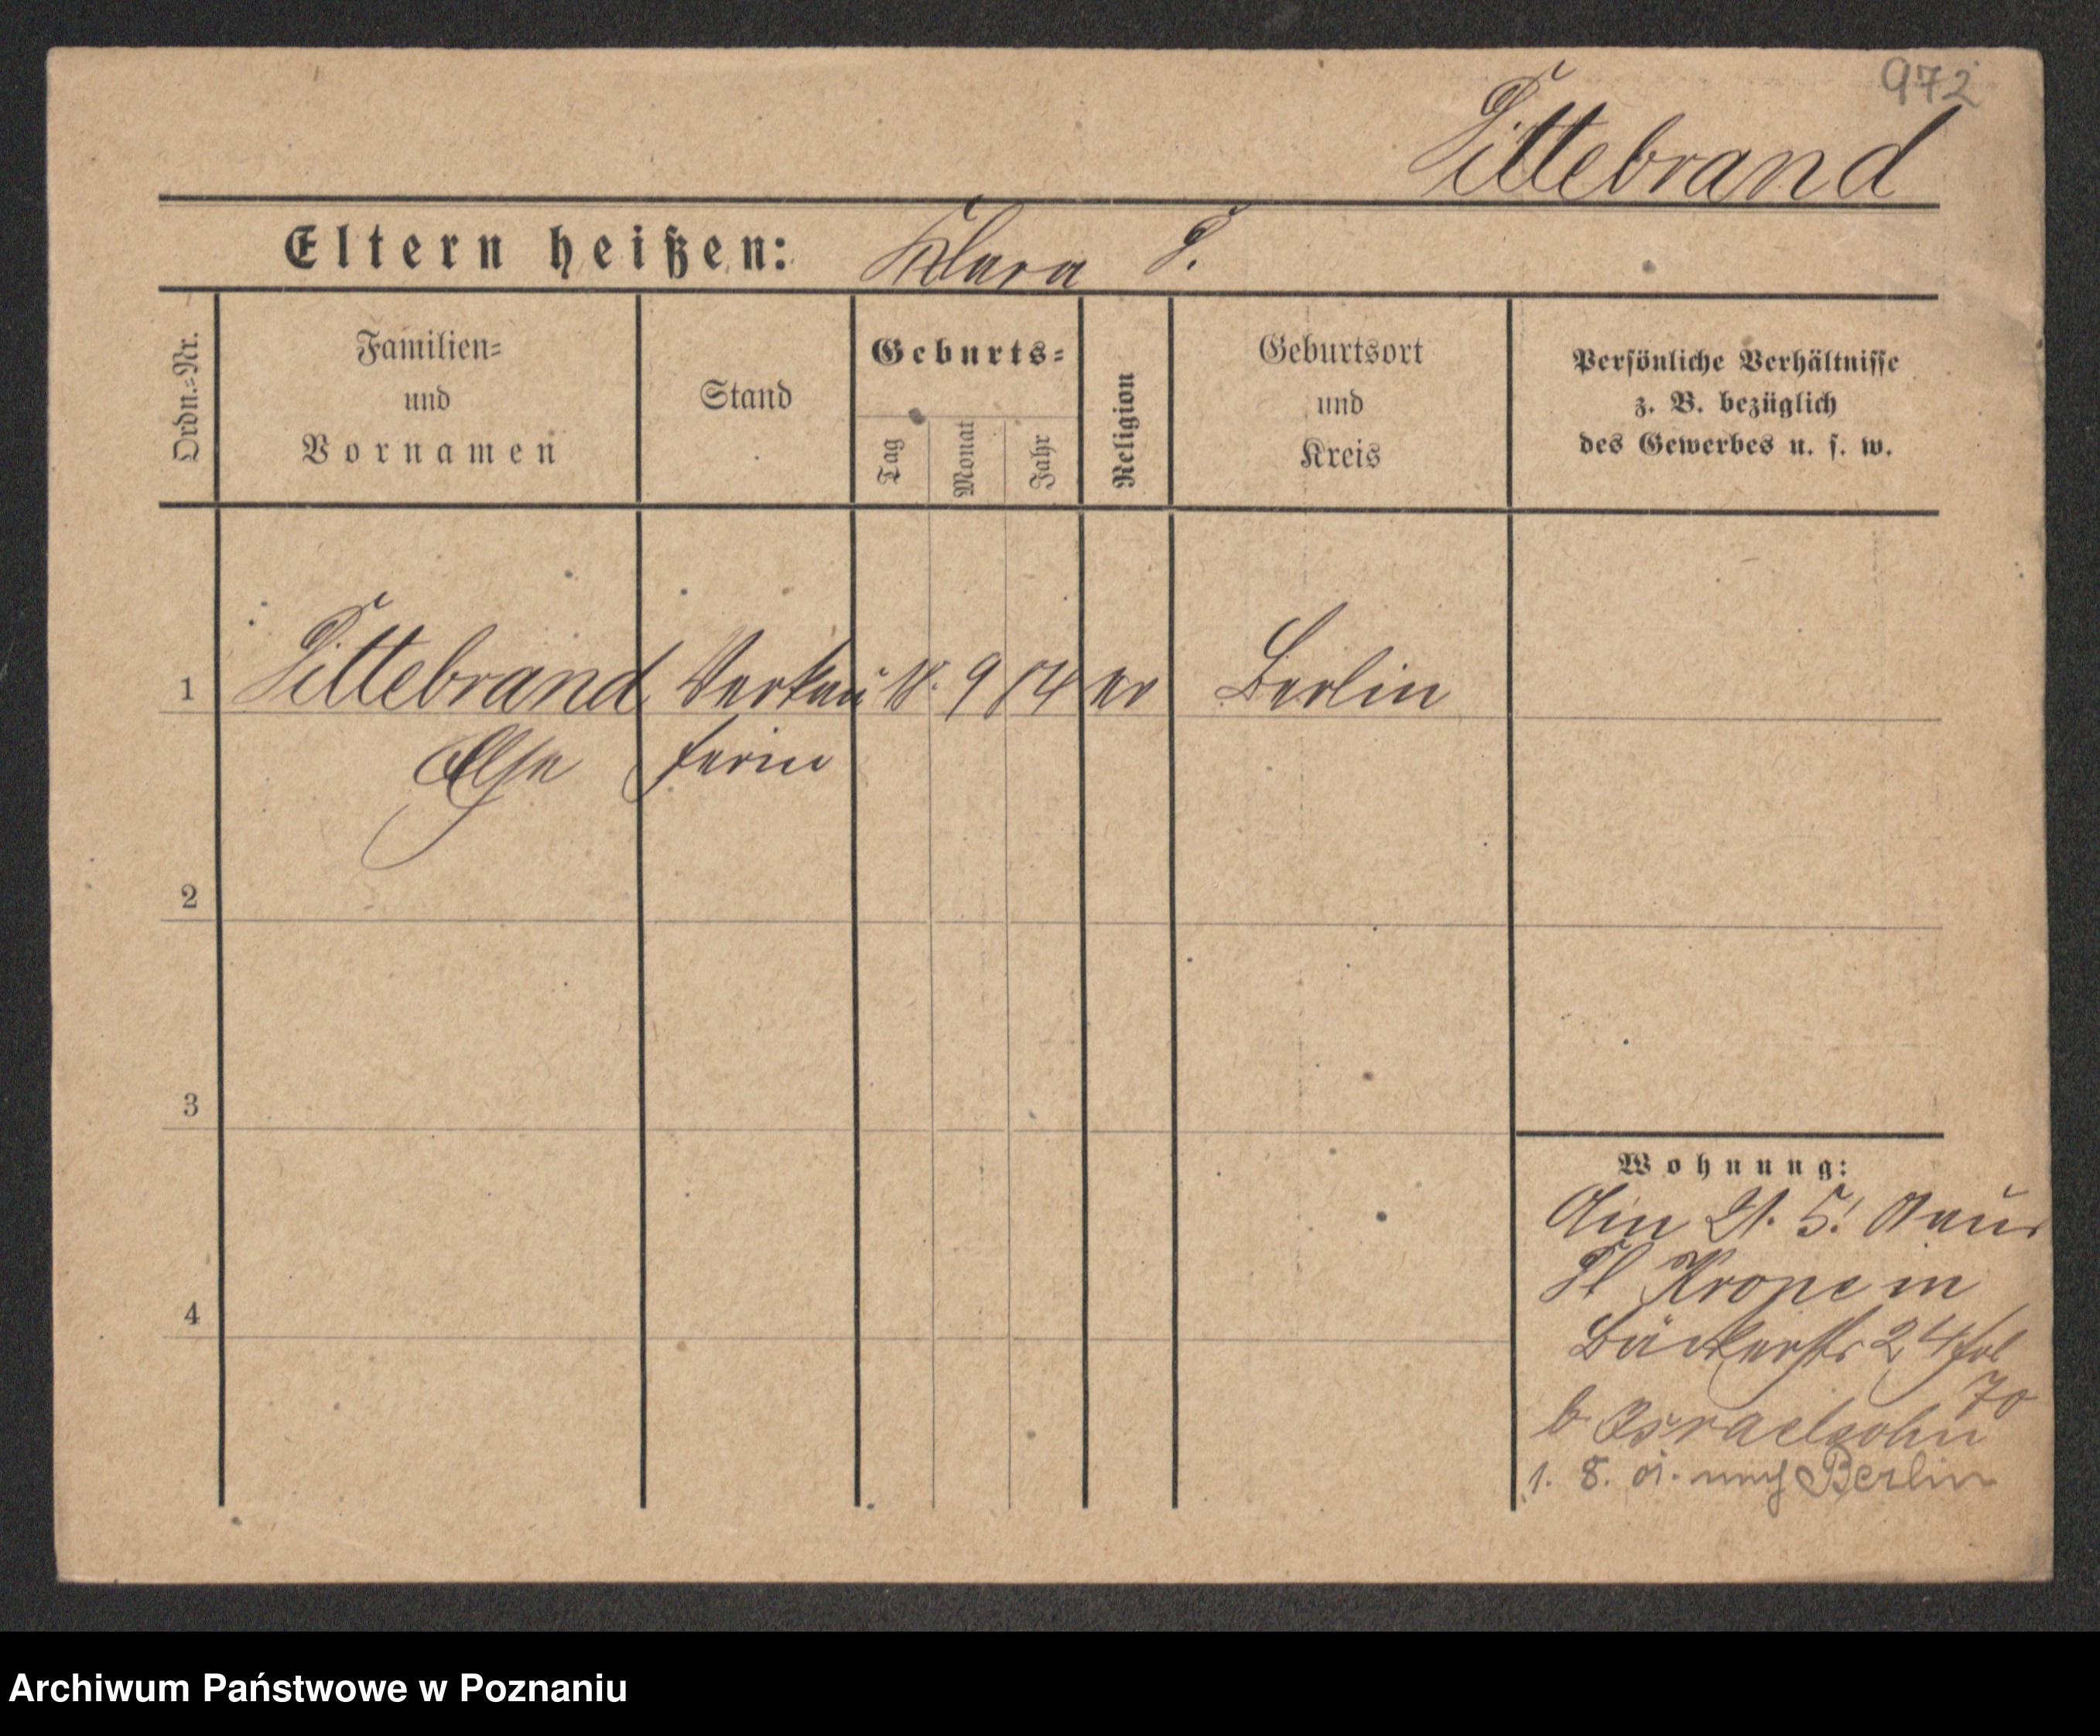 972
Tittebrand
Eltern heißen: Klara T.
Ordn.-Nr.
Familien-
und
Vornamen
Stand
Geburts-
Tag
Monat
Jahr
Religion
Geburtsort
und
Kreis
Persönliche Verhältnisse
z. B. bezüglich
des Gewerbes u. s. w.
1 Tittebrand Verkäu 18. 9 84 ev Berlin
Else ferin
2
3
4
Wohnung:
21. 5.
Krone in
Bäckerstr 24
70
b Israelsohn
1. 8. nach Berlin
Archiwum Państwowe w Poznaniu